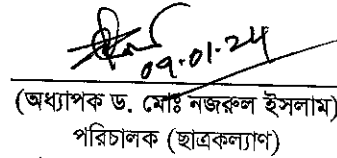 09.01.24
(অধ্যাপক ড. মোঃ নজরুল ইসলাম)
পরিচালক (ছাত্রকল্যাণ)